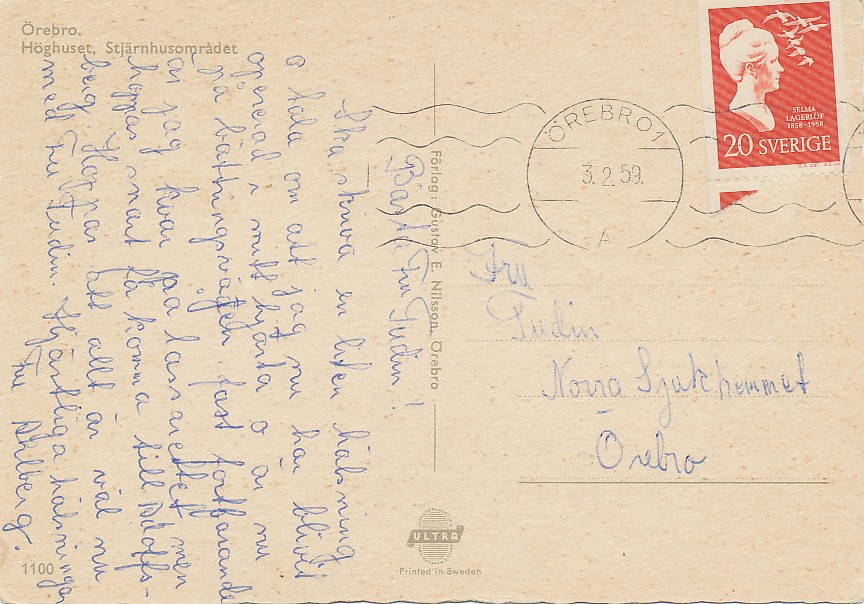 Örebro.
Höghuset, Stjärnhusområdet
Bästa Fru Tudin!
Ska skriva en liten hälsning
o tala om att jag nu har blivit
opererad i mitt hjärta o är nu
på bättringsvägen, fast fortfarande
är jag kvar på lasarettet men
hoppas snart få komma till Adolfs-
berg. Hoppas att allt är väl nu
med Fru Tudin. Hjärtliga hälsningar
Fru Ahlberg.
1100
Förlag: Gustav E. Nilsson, Örebro
ULTRA
Printed in Sweden
ÖREBRO 1
3.2.59.
A
SELMA
LAGERLÖF
1858-1958
20 SVERIGE
Fru
Tudin
Norra Sjukhemmet
Örebro